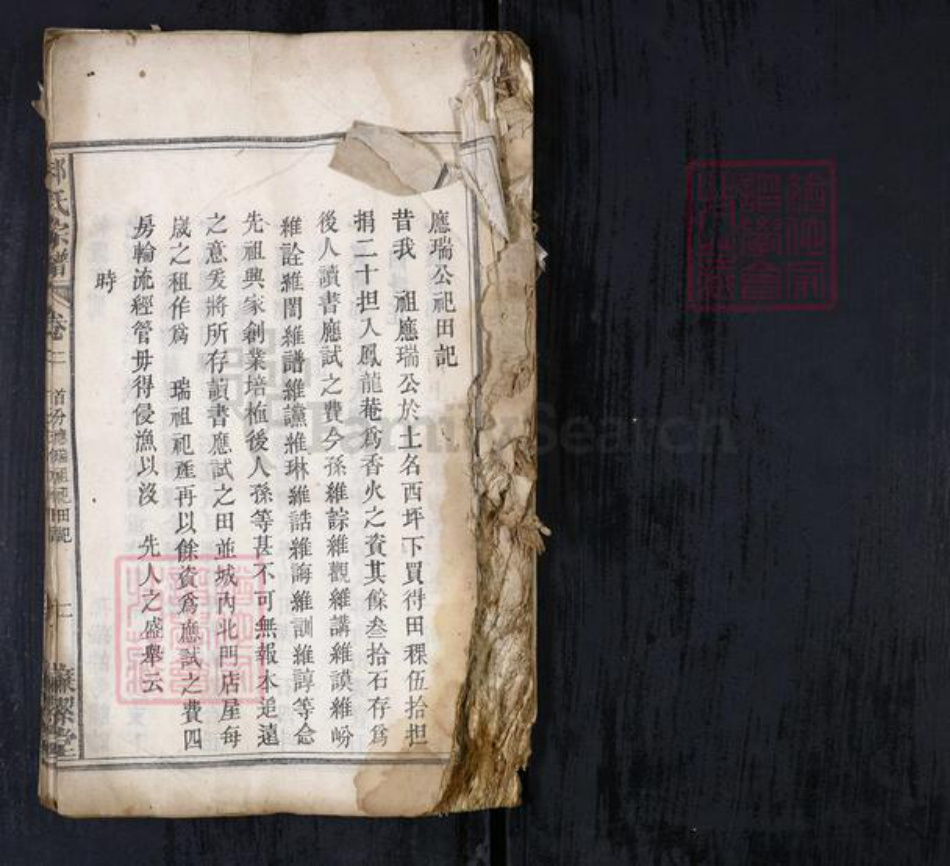 應瑞公祀田記
昔我 祖應瑞公於土名西坪下買得田稞伍拾担
捐二十担入鳳龍菴爲香火之資其餘叁拾石存爲
後人讀書應試之費今孫維諒維觀維講維謨維
維詮維誾維譜維讌維琳維誥維誨維訓維諄等念
先祖興家創業培植後人孫等甚不可無報本追遠
之意爰將所存讀書應試之田並城內北門店屋每
歲之租作爲 瑞祖祀產再以餘資爲應試之費四
房輪流經管毋得侵漁以沒 先人之盛舉云
時
氏宗譜 卷 祀田記
堂
FamilySearch